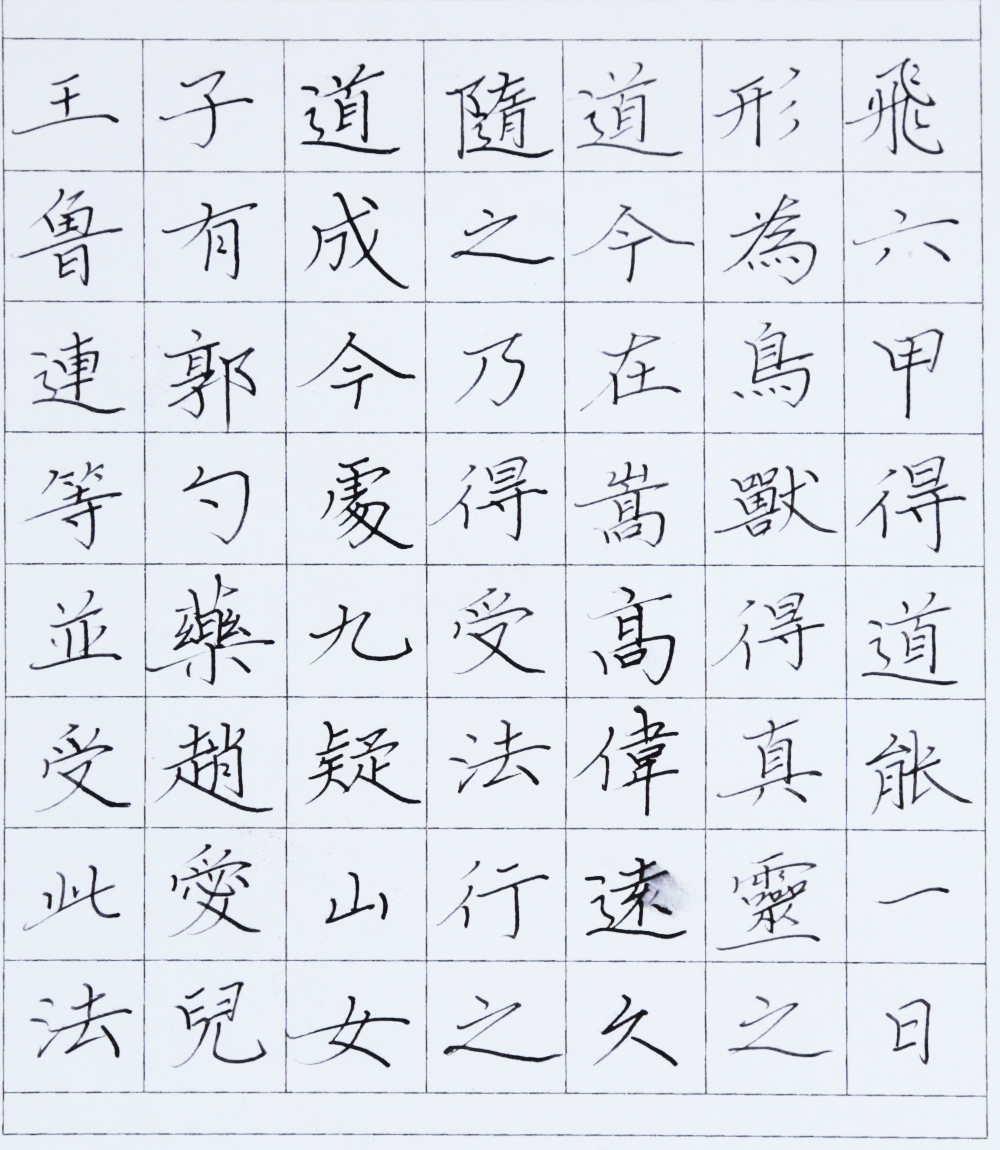 飛六甲得道能一日
形為鳥獸得真靈之
道今在嵩高偉遠久
隨之乃得受法行之
道成今處九疑山女
子有郭勺藥趙愛兒
王魯連等並受此法